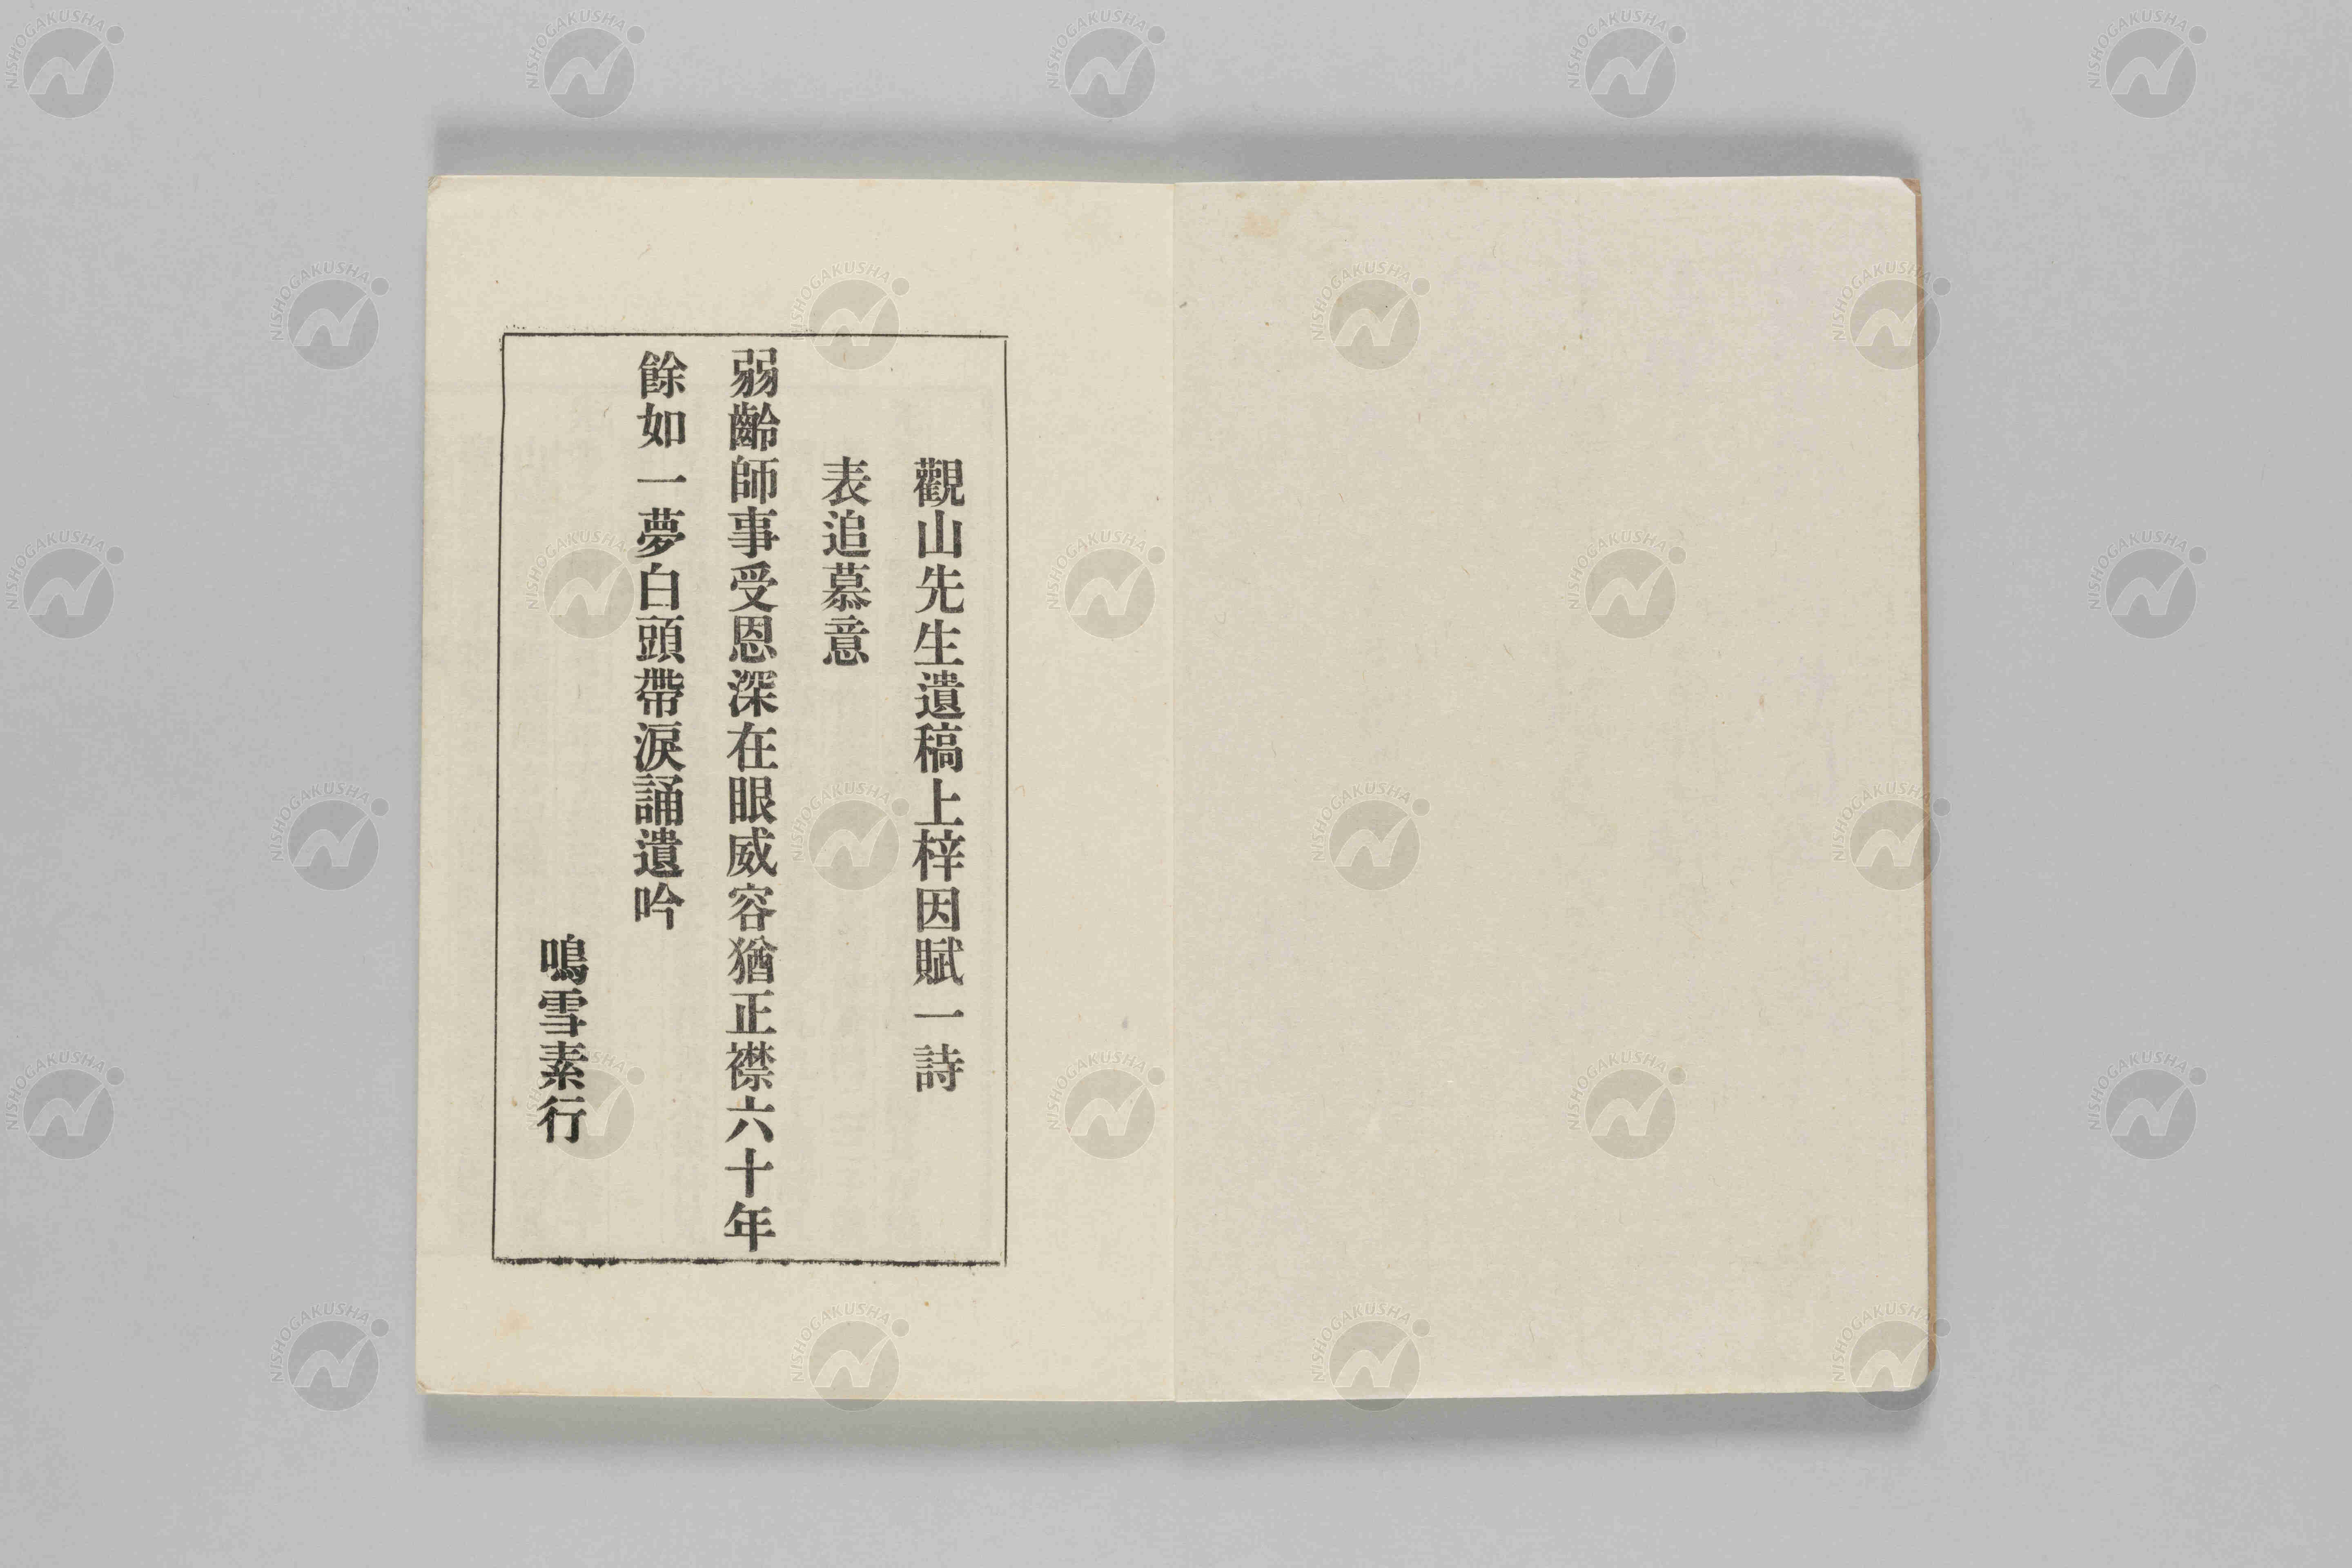 觀山先生遺稿上梓因賦一詩
表追慕意
弱齡師事受恩深在眼威容猶正襟六十年
餘如一夢白頭帶淚誦遺吟
鳴雪素行
NISHOGAKUSHA